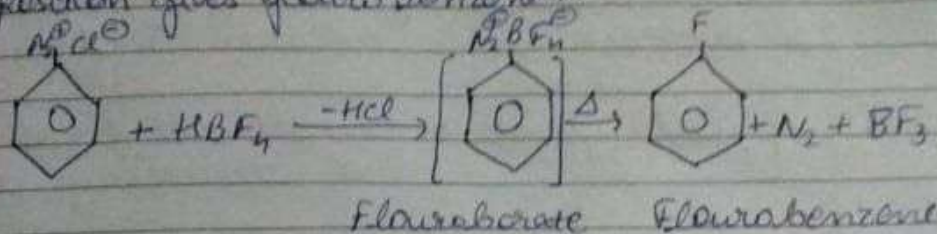 gives
N₂⊕Cl⊖ N₂⊕BF₄⊖ F
+ HBF₄ -HCl → Δ → + N₂ + BF₃
Flouraborate Flourabenzene